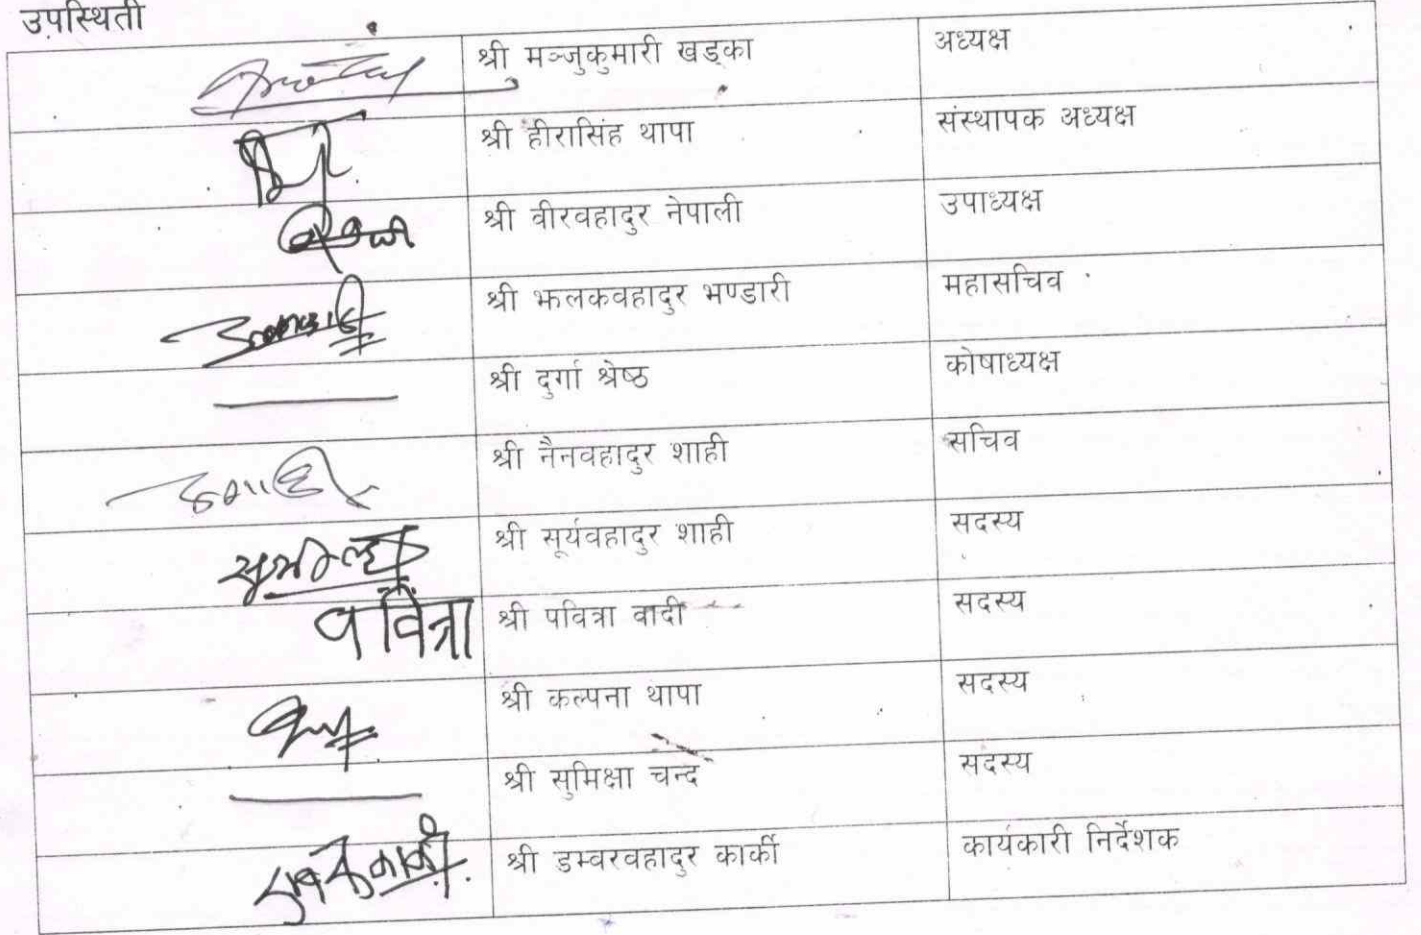 उपस्थिती
श्री मञ्जुकुमारी खड्का अध्यक्ष
श्री हीरासिंह थापा संस्थापक अध्यक्ष
श्री वीरवहादुर नेपाली उपाध्यक्ष
श्री झलकवहादुर भण्डारी महासचिव
श्री दुर्गा श्रेष्ठ कोषाध्यक्ष
श्री नैनवहादुर शाही सचिव
श्री सूर्यवहादुर शाही सदस्य
पवित्रा श्री पवित्रा वादी सदस्य
श्री कल्पना थापा सदस्य
श्री सुमिक्षा चन्द सदस्य
श्री डम्वरवहादुर कार्की कार्यकारी निर्देशक